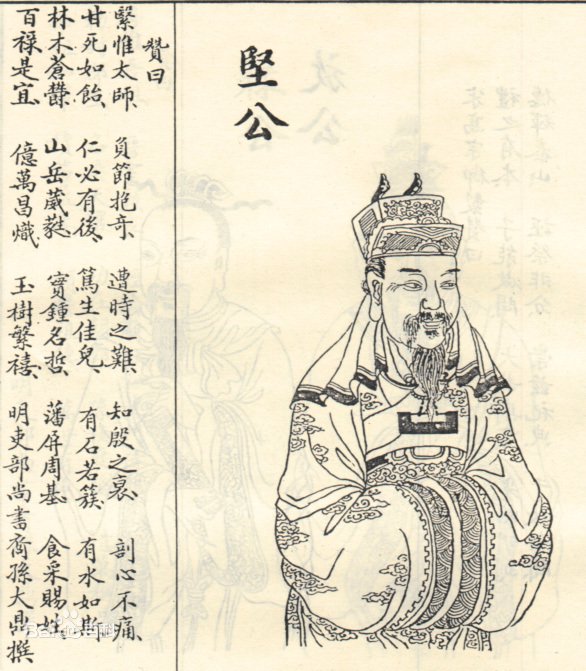 堅公
贊曰
繄惟太師、負節抱奇、遭時之難、知殷之衰、剖心不痛、
甘死如飴、仁必有後、篤生佳兒、有石若簇、有水如斯、
林木蒼欝、山岳葳蕤、實鍾名哲、藩屏周基、食采賜姓、
百禄是宜、億萬昌熾、玉樹繁禧、明吏部尚書裔孫大鼎撰
Baidu百科